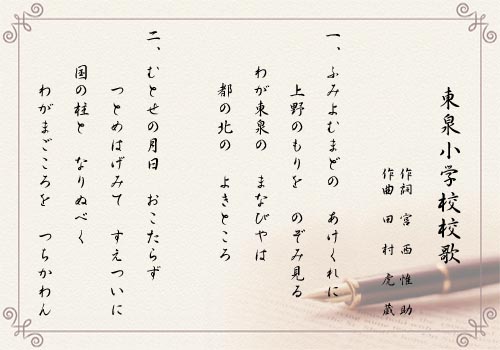 東泉小学校校歌
作詞 宮西惟助
作曲 田村虎蔵
一、ふみよむまどの あけくれに
上野のもりを のぞみ見る
わが東泉の まなびやは
都の北の よきところ
二、むとせの月日 おこたらず
つとめはげみて すえついに
国の柱と なりぬべく
わがまごころを つちかわん